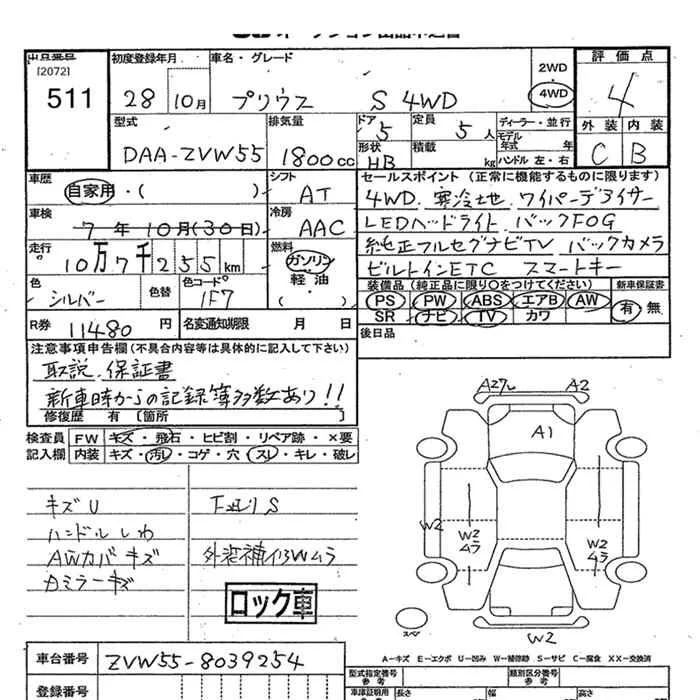 出品番号
[2072]
511
初度登録年月
28 10月
車名・グレード
プリウス S 4WD
2WD
・
4WD
評価点
4
外装 内装
C B
型式
DAA-ZVW55
排気量
1800cc
ドア
5
形状
HB
定員
5人
積載
kg
ディーラー・並行
モデル年式 年
ハンドル 左・右
車歴
自家用・( )
シフト
AT
車検
7年10月(30日)
冷房
AAC
走行
10万7千255km
燃料
ガソリン
軽油
・( )
色
シルバー
色替
色コード
1F7
R券 11480円
名変通知期限 月 日
セールスポイント(正常に機能するものに限ります)
4WD. 寒冷地. ワイパーデアイサー
LEDヘッドライト バックFOG
純正フルセグナビTV バックカメラ
ビルトインETC スマートキー
装備品(純正品に限り○をつけてください)
PS PW ABS エアB AW
SR ナビ TV カワ
新車保証書
有・無
後日品
注意事項申告欄(不具合内容等は具体的に記入して下さい)
取説. 保証書
新車時からの記録簿多数あり!!
修復歴 有 〔箇所 〕
検査員記入欄
FW キズ・飛石・ヒビ割・リペア跡・×要
内装 キズ・汚レ・コゲ・穴・スレ・キレ・破レ
キズU
ハンドルしわ
AWカバキズ
カミラーキズ
下廻りS
外装補修Wムラ
ロック車
A27L A2
A1
W2
W2
ムラ
W2
ムラ
W2
スペア
A-キズ E-エクボ U-凹み W-補修跡 S-サビ C-腐食 XX-交換済
車台番号 ZVW55-8039254
登録番号
型式指定番号
参考
類別区分番号
参考
車庫証明用
参考
長さ
幅
高さ